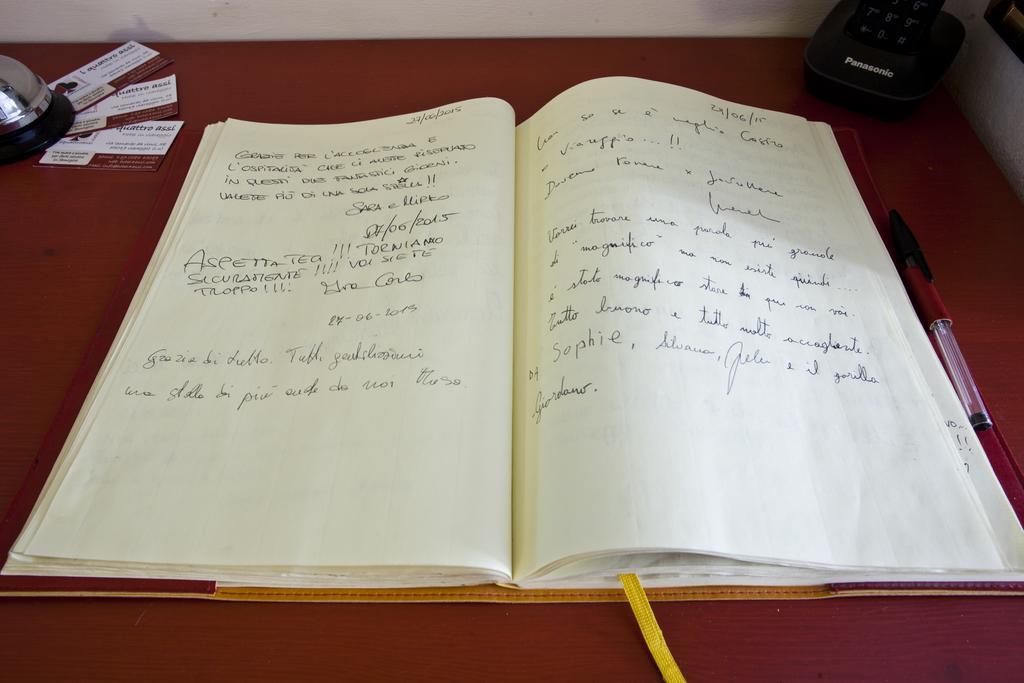 27/06/2015
GRAZIE PER L'ACCOGLIENZA E
L'OSPITALITÀ CHE CI AVETE RISERVATO
IN QUESTI DUE FANTASTICI GIORNI.
VALETE PIÙ DI UNA SOLA STELLA!!
SARA e MIRKO
27/06/2015
ASPETTATECI!!! TORNIAMO
SICURAMENTE!!!! VOI SIETE
TROPPO!!!!
27-06-2015
Grazie di tutto. Tutti gentilissimi
una stella di più anche da noi
29/06/15
so se è meglio Castro
Viareggio...!!
Dovremo tornare x
Vorrei trovare una parola più grande
di "magnifico" ma non esiste quindi....
è stato magnifico stare qui con voi.
Tutto buono e tutto molto accogliente.
DA Sophie, Silvana, e il gorilla
Giordano.
i quattro assi
quattro assi
quattro assi
Panasonic
7 8 9
* 0 #